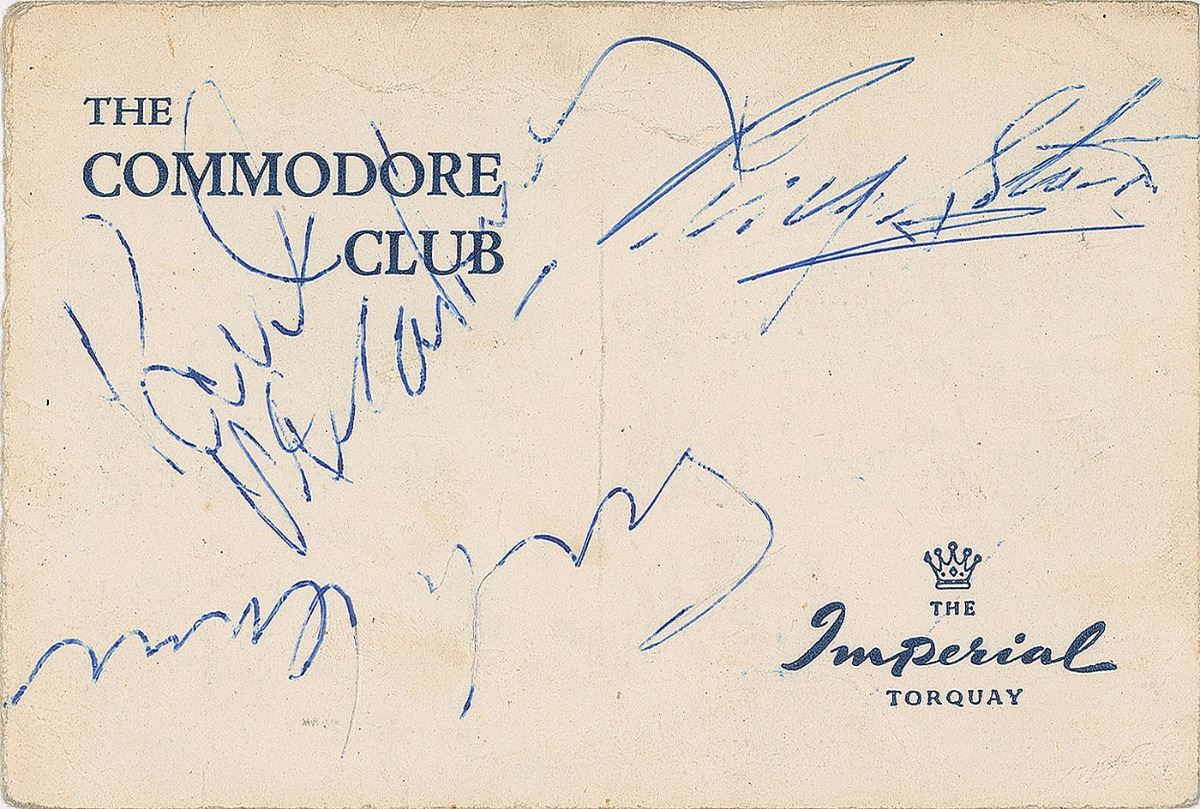 THE
COMMODORE
CLUB
Ringo Starr
Paul
McCartney
THE
Imperial
TORQUAY